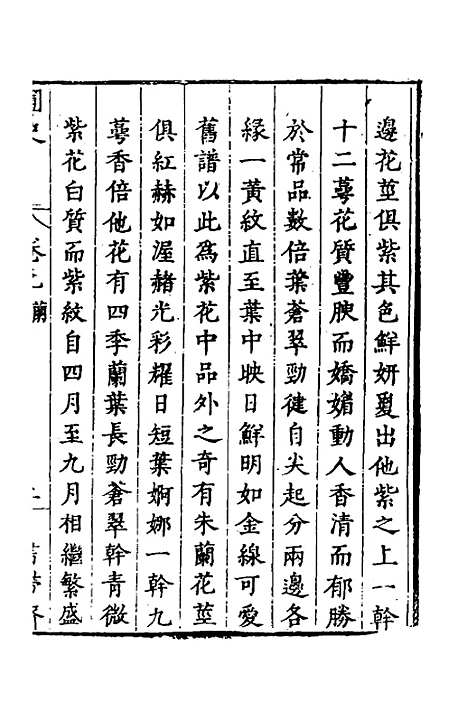 邊花莖俱紫其色鮮妍夐出他紫之上一幹
十二蕚花質豐腴而嬌媚動人香清而郁勝
於常品數倍葉蒼翠勁健自尖起分兩邊各
緣一黃紋直至葉中映日鮮明如金線可愛
舊譜以此為紫花中品外之奇有朱蘭花莖
俱紅赫如渥赭光彩耀日短葉婀娜一幹九
蕚香倍他花有四季蘭葉長勁蒼翠幹青微
紫花白質而紫紋自四月至九月相繼繁盛